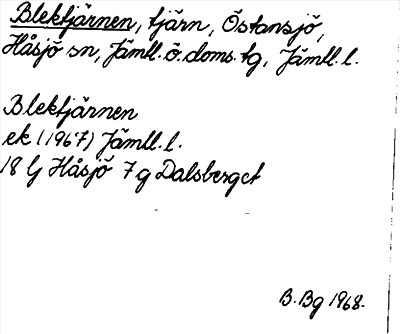 Blektjärnen, tjärn, Östansjö,
Håsjö sn, Jämtl. ö. doms. tg, Jämtl. l.
Blektjärnen
ek (1967) Jämtl. l.
18 G Håsjö 7 g Dalsberget
B. Bg 1968.